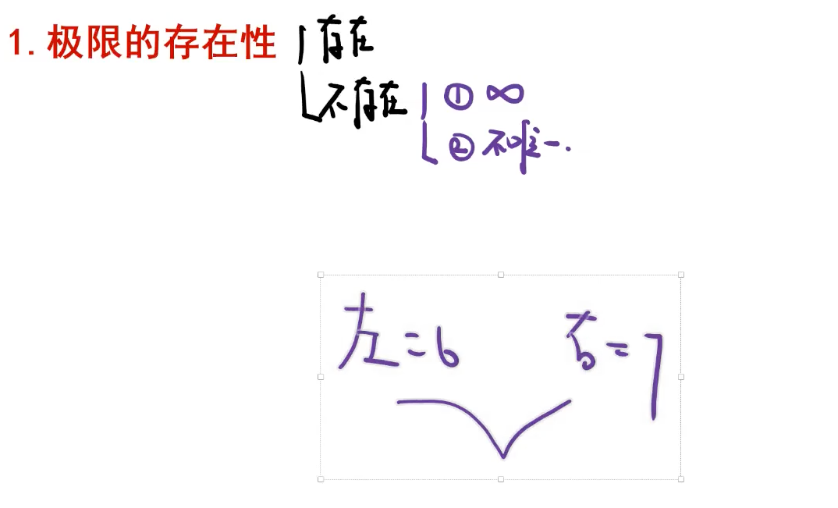 1. 极限的存在性 存在
不存在 ① ∞
② 不唯一.
左=6 右=7